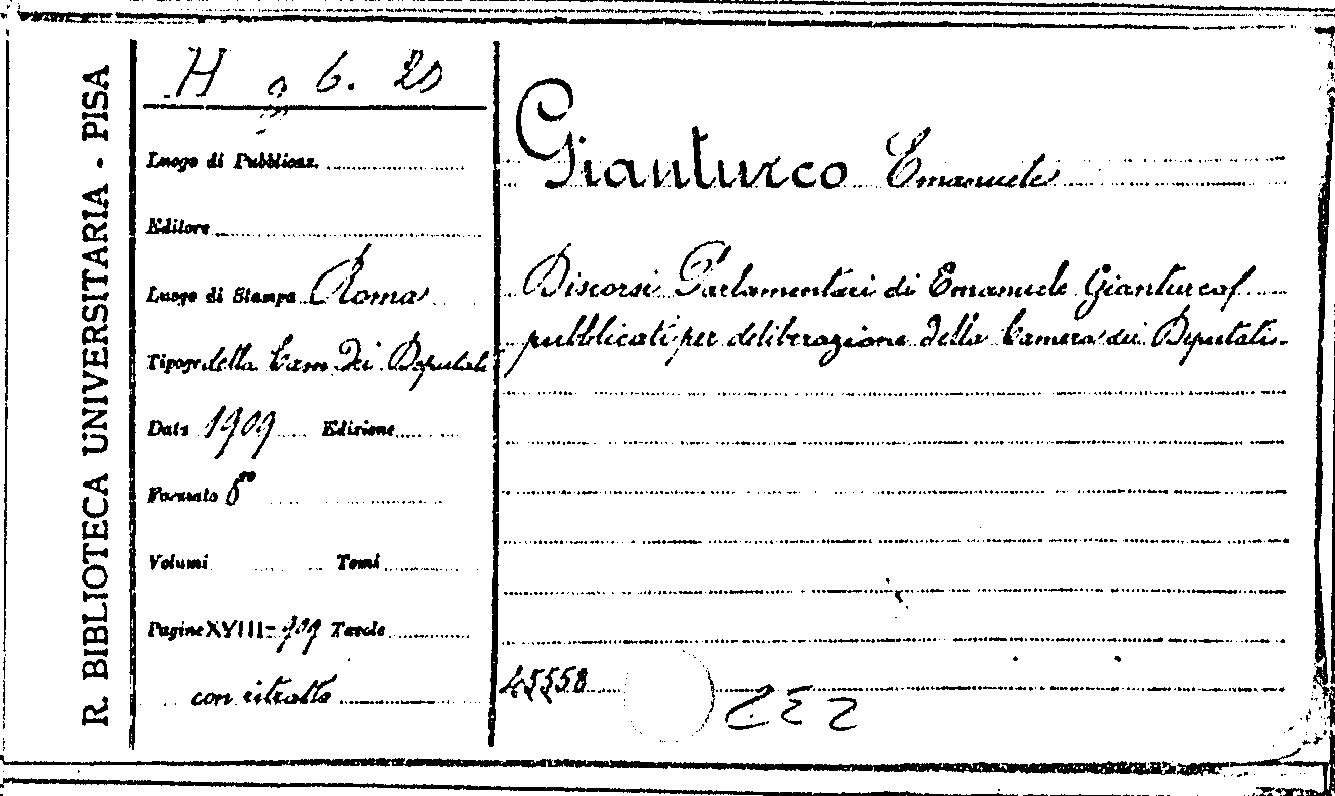 R. BIBLIOTECA UNIVERSITARIA - PISA
H 2 6. 20
Luogo di Pubblicaz.
Editore
Luogo di Stampa Roma
Tipogr. della Cam. dei Deputati
Data 1909 Edizione
Formato 8º
Volumi Tomi
Pagine XVIII-909 Tavole
con ritratto
Gianturco Emanuele
Discorsi Parlamentari di Emanuele Gianturco
pubblicati per deliberazione della Camera dei Deputati.
45558